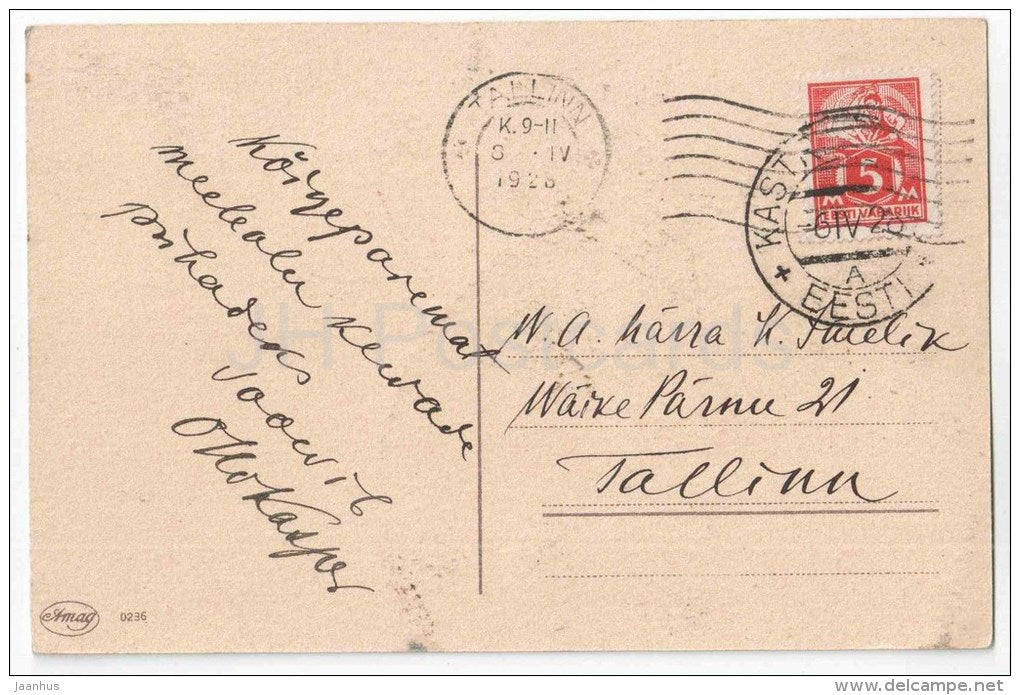 TALLINN
K. 9-11
8 . IV
1928
5
M M
EESTI VABARIIK
6 IV 28
A
EESTI
Kõigeparemat
meeleolu kewade
pühadeks
soowib
Otto Kaspar
W. A. härra K. Imelik
Wäike Pärnu 21
Tallinn
JH Postcards
Amag 0236
jaanhus
delcampe.net